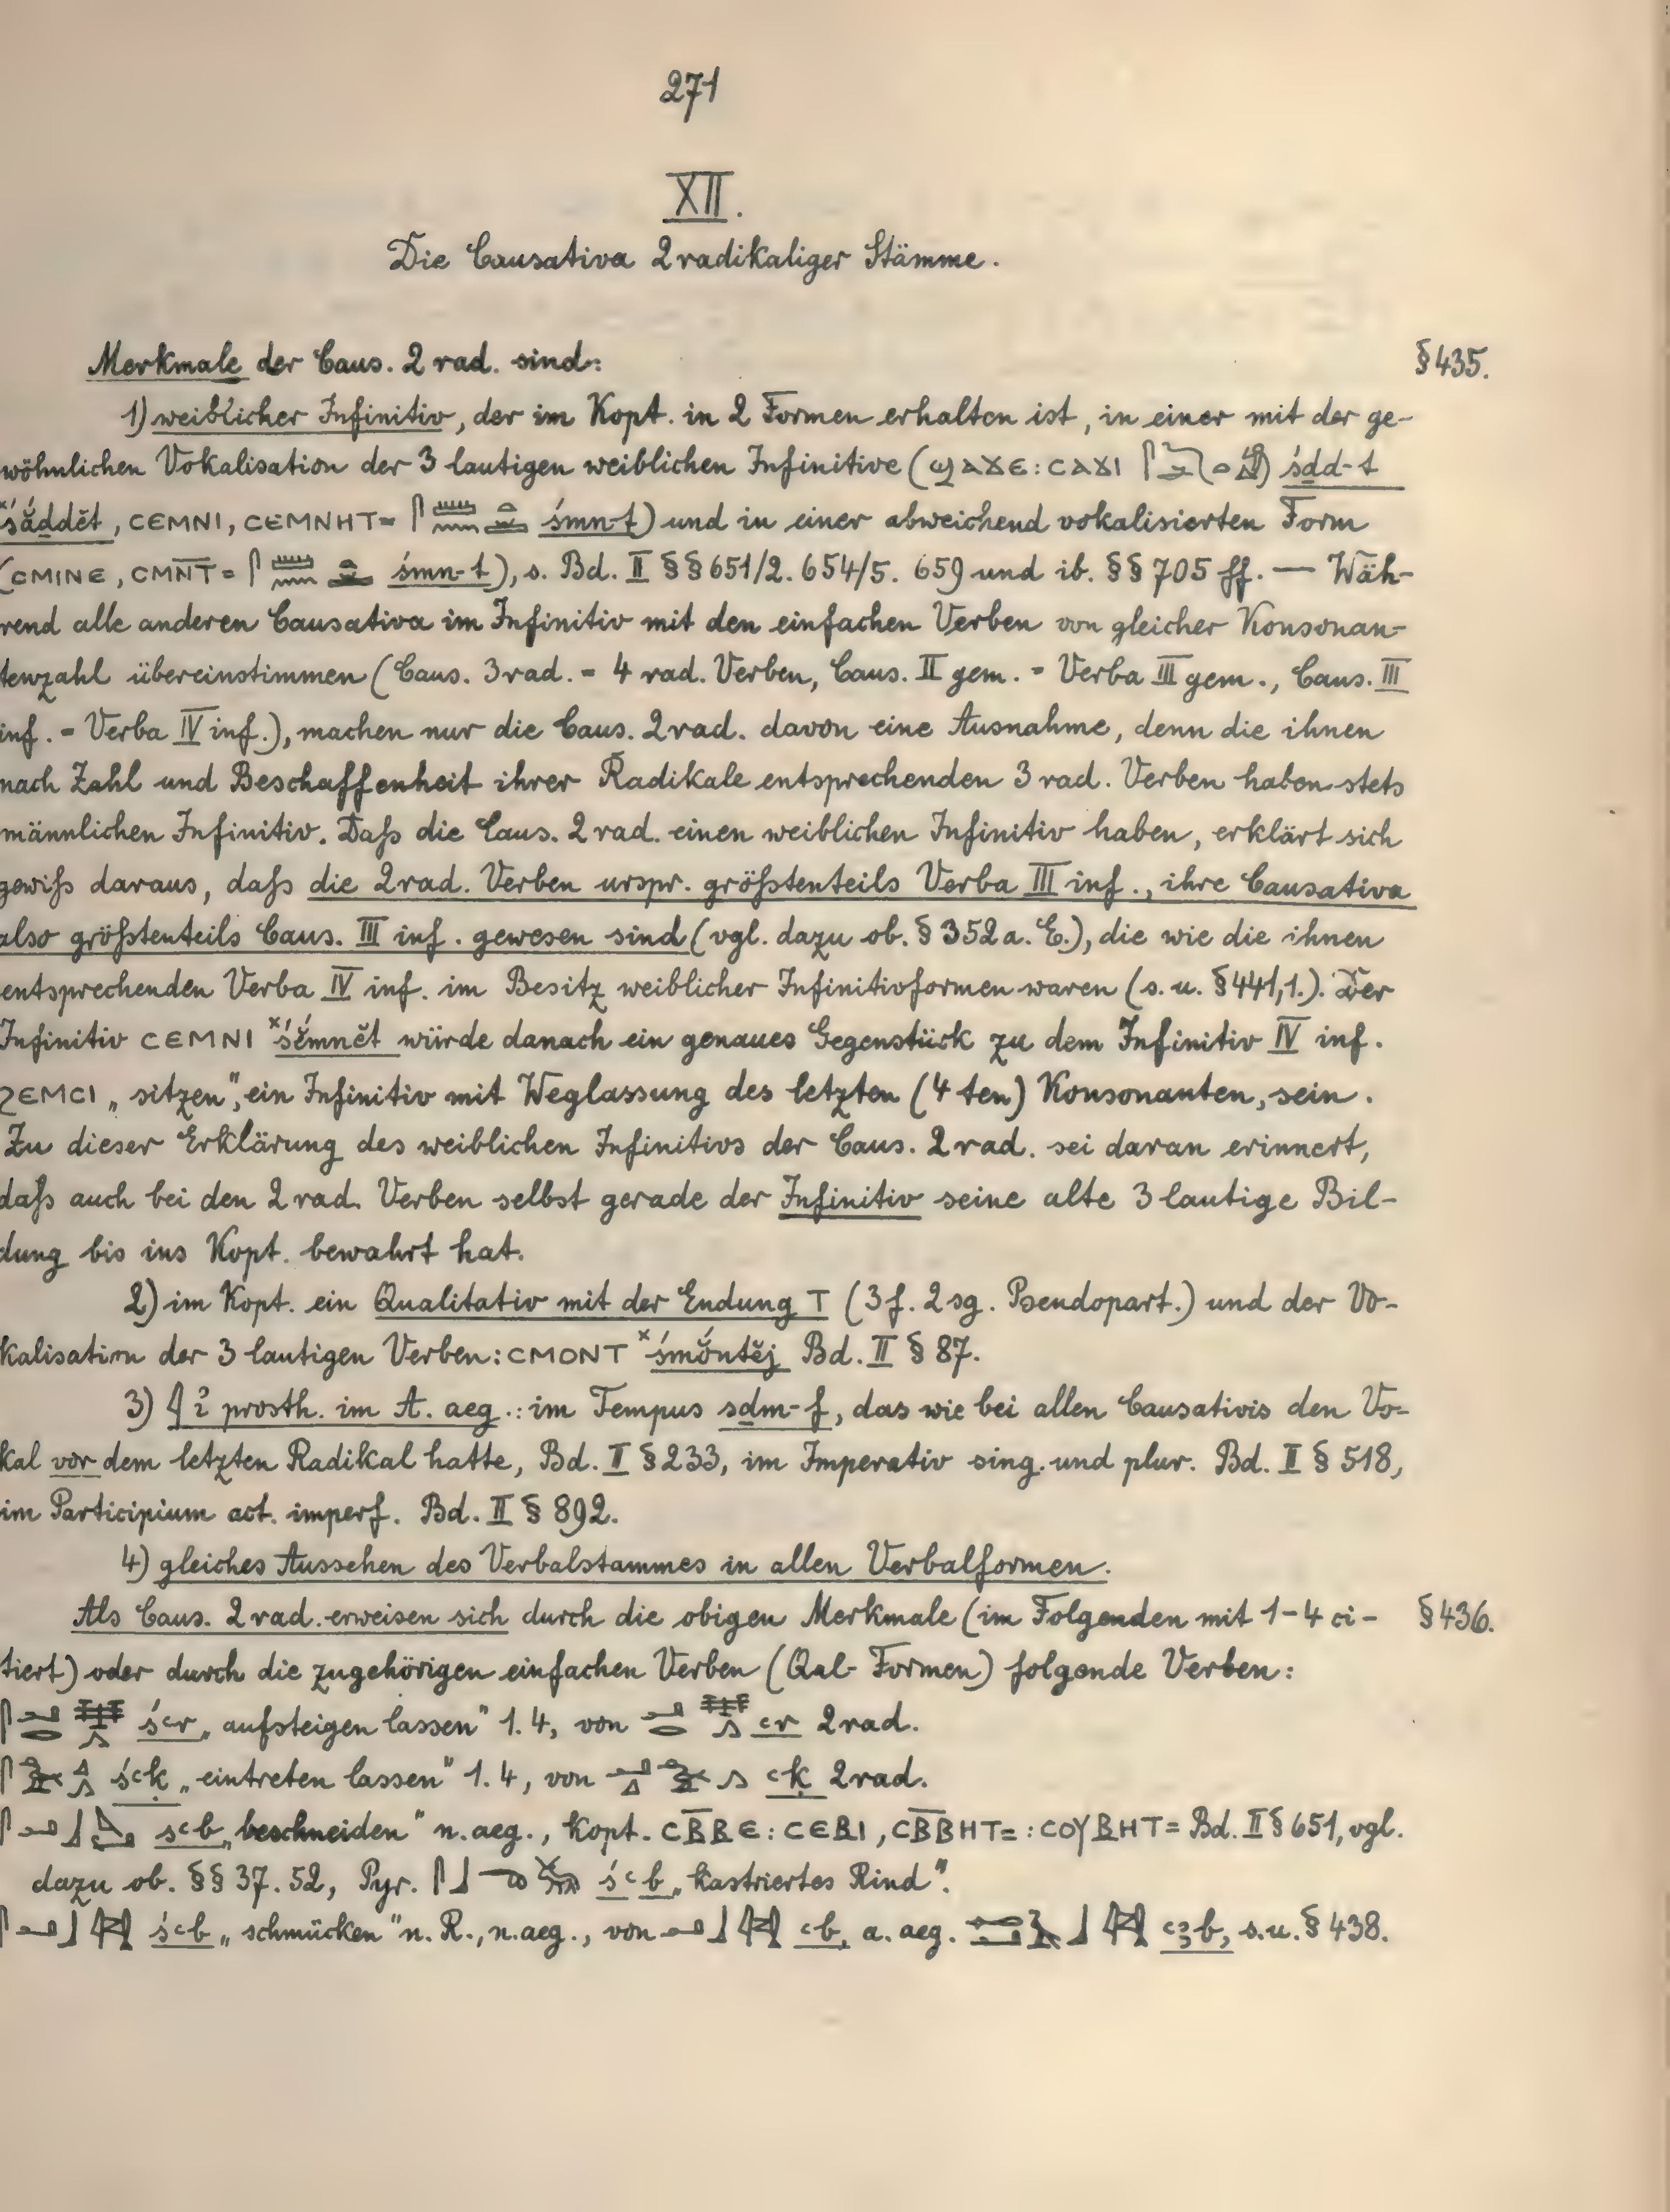 271
XII.
Die Causativa 2radikaliger Stämme.
Merkmale der Caus. 2 rad. sind: §435.
1) weiblicher Infinitiv, der im Kopt. in 2 Formen erhalten ist, in einer mit der ge-
wöhnlichen Vokalisation der 3 lautigen weiblichen Infinitive (ϣⲁϫⲉ : ⲥⲁϫⲓ śḏd-t
*śắddĕt, ⲥⲉⲙⲛⲓ, ⲥⲉⲙⲛⲏⲧ= śmn-t) und in einer abweichend vokalisierten Form
(ⲥⲙⲓⲛⲉ, ⲥⲙⲛ̅ⲧ̅= śmn-t), s. Bd. II §§ 651/2. 654/5. 659 und ib. §§ 705 ff. — Wäh-
rend alle anderen Causativa im Infinitiv mit den einfachen Verben von gleicher Konsonan-
tenzahl übereinstimmen (Caus. 3rad. = 4 rad. Verben, Caus. II gem. = Verba III gem., Caus. III
inf. = Verba IV inf.), machen nur die Caus. 2rad. davon eine Ausnahme, denn die ihnen
nach Zahl und Beschaffenheit ihrer Radikale entsprechenden 3 rad. Verben haben stets
männlichen Infinitiv. Daß die Caus. 2 rad. einen weiblichen Infinitiv haben, erklärt sich
gewiß daraus, daß die 2rad. Verben urspr. größtenteils Verba III inf., ihre Causativa
also größtenteils Caus. III inf. gewesen sind (vgl. dazu ob. § 352 a. E.), die wie die ihnen
entsprechenden Verba IV inf. im Besitz weiblicher Infinitivformen waren (s. u. §441,1.). Der
Infinitiv ⲥⲉⲙⲛⲓ *śĕ́mnĕt würde danach ein genaues Gegenstück zu dem Infinitiv IV inf.
ϩⲉⲙⲥⲓ „sitzen", ein Infinitiv mit Weglassung des letzten (4 ten) Konsonanten, sein.
Zu dieser Erklärung des weiblichen Infinitivs der Caus. 2 rad. sei daran erinnert,
daß auch bei den 2 rad. Verben selbst gerade der Infinitiv seine alte 3 lautige Bil-
dung bis ins Kopt. bewahrt hat.
2) im Kopt. ein Qualitativ mit der Endung ⲧ (3 f. 2 sg. Pseudopart.) und der Vo-
kalisation der 3 lautigen Verben: ⲥⲙⲟⲛⲧ *śmŏ́ntĕj Bd. II § 87.
3) 𓇋 ỉ prosth. im A. aeg.: im Tempus sḏm-f, das wie bei allen Causativis den Vo-
kal vor dem letzten Radikal hatte, Bd. II § 233, im Imperativ sing. und plur. Bd. II § 518,
im Participium act. imperf. Bd. II § 892.
4) gleiches Aussehen des Verbalstammes in allen Verbalformen.
Als Caus. 2 rad. erweisen sich durch die obigen Merkmale (im Folgenden mit 1-4 ci- §436.
tiert) oder durch die zugehörigen einfachen Verben (Qal-Formen) folgende Verben:
śꜥr „aufsteigen lassen" 1. 4, von ꜥr 2rad.
śꜥḳ „eintreten lassen" 1. 4, von ꜥḳ 2rad.
sꜥb „beschneiden" n. aeg., kopt. ⲥⲃ̅ⲃⲉ : ⲥⲉⲃⲓ, ⲥⲃ̅ⲃⲏⲧ= : ⲥⲟⲩⲃⲏⲧ= Bd. II § 651, vgl.
dazu ob. §§ 37. 52, Pyr. śꜥb „kastriertes Rind".
śꜥb „schmücken" n. R., n. aeg., von ꜥb, a. aeg. ꜥꜣb, s. u. § 438.